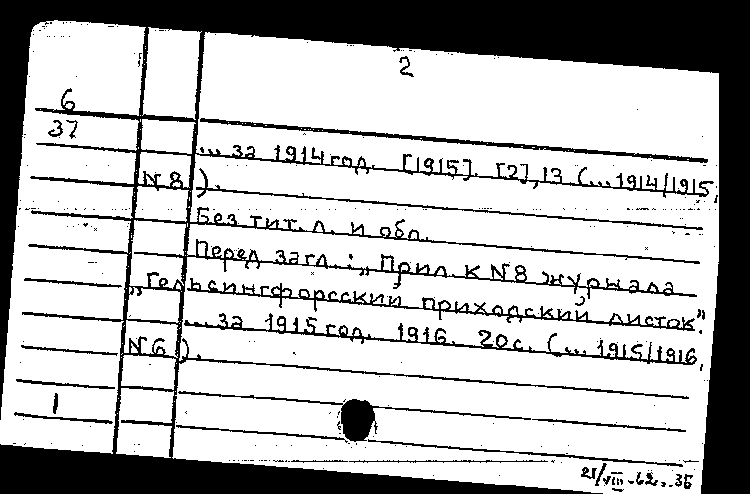 2
6
37
... за 1914 год. [1915]. [2], 13 (... 1914/1915,
№ 8).
Без тит. л. и обл.
Перед загл.: „Прил. к № 8 журнала
„Гельсингфорсский приходский листок".
... за 1915 год. 1916. 20 с. (... 1915/1916,
№ 6).
1
21/VIII-62.. 35